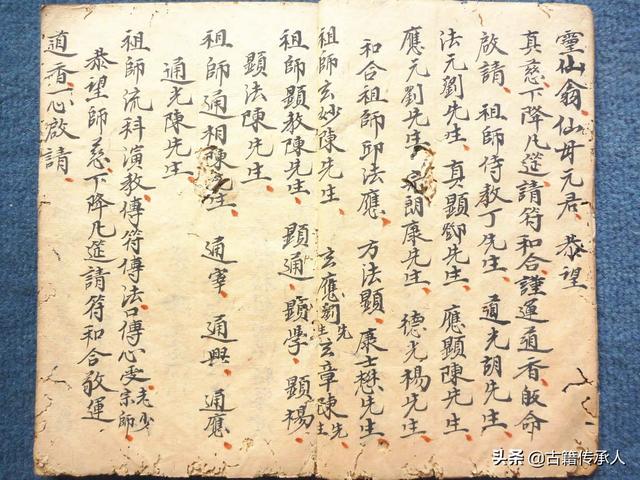 靈仙翁 仙母元君 恭望
真慈下降凡筵請符和合謹運道香皈命
啟請 祖師侍教丁先生 道光胡先生
法元劉先生 真顯鄧先生 應顯陳先生
應元劉先生 朗康先生 德光楊先生
和合祖師邱法應 方法顯 康士懋先生
祖師玄妙陳先生 玄應劉先生 玄章陳先生
祖師顯教陳先生 顯通 顯學 顯楊
顯法陳先生
祖師通相陳先生 通寧 通興 通應
通光陳先生
祖師流科演教傳符傳法口傳心受老少宗師
恭望師慈下降凡筵請符和合敬運
道香一心啟請
头条 @古籍传承人